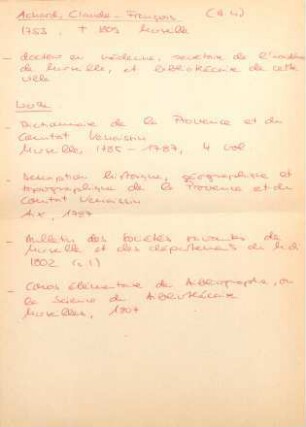 Achard, Claude-François (B 4)
1753, † 1809 Marseille
- docteur en médecine, secrétaire de l'académie
de Marseille, et bibliothécaire de cette
ville
- Dictionnaire de la Provence et du
Comtat Venaissin
Marseille, 1785-1787, 4 vol
- Description historique, géographique et
topographique de la Provence et du
Comtat Venaissin
Aix, 1787
- Bulletin des sociétés savantes de
Marseille et des départements du Midi
1802 (n. 1)
- Cours élémentaire de bibliographie, ou
la Science du bibliothécaire
Marseille, 1807